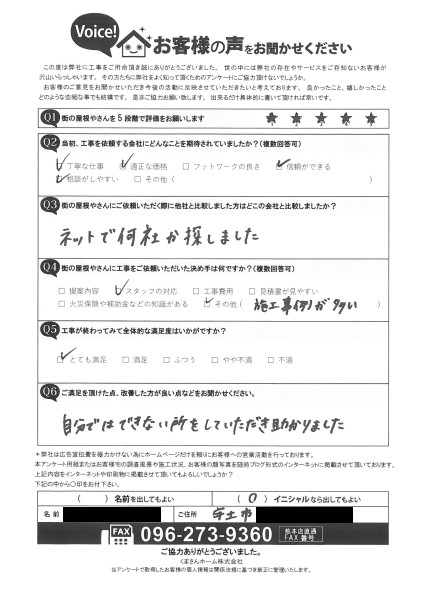 Voice!
お客様の声をお聞かせください
この度は弊社に工事をご用命頂き誠にありがとうございました。世の中には弊社の存在やサービスをご存知ないお客様が
沢山いらっしゃいます。その方たちに弊社をよく知って頂くためのアンケートにご協力頂けないでしょうか。
お客様のご意見をお聞かせいただき今後の活動に反映させていただきたいと考えております。良かったこと、嬉しかったこと
どのような些細な事でも結構です。是非ご協力お願い致します。出来るだけ具体的に書いて頂ければ幸いです。
Q1 街の屋根やさんを5段階で評価をお願いします ★ ★ ★ ★ ★
1 2 3 4 5
Q2 当初、工事を依頼する会社にどんなことを期待されていましたか?(複数回答可)
☑ 丁寧な仕事 ☑ 適正な価格 □ フットワークの良さ ☑ 信頼ができる
☑ 相談がしやすい □ その他( )
Q3 街の屋根やさんにご依頼いただく際に他社と比較しました方はどこの会社と比較しましたか?
ネットで何社か探しました
Q4 街の屋根やさんに工事をご依頼いただいた決め手は何ですか?(複数回答可)
□ 提案内容 ☑ スタッフの対応 □ 工事費用 □ 見積書が見やすい
□ 火災保険や補助金などの知識がある ☑ その他( 施工事例が多い )
Q5 工事が終わってみて全体的な満足度はいかがですか?
☑ とても満足 □ 満足 □ ふつう □ やや不満 □ 不満
Q6 ご満足を頂けた点、改善した方が良い点などをお聞かせください。
自分ではできない所をしていただき助かりました
*弊社は広告宣伝費を極力かけない為にホームページだけを頼りにお客様への営業活動を行っております。
本アンケート用紙またはお客様宅の調査風景や施工状況、お客様の顔写真を随時ブログ形式のインターネットに掲載させて頂いております。
上記内容をインターネットや印刷物に掲載させて頂いてもよろしいでしょうか?
下記の中から〇印をお付下さい。
( ) 名前を出してもよい ( 〇 ) イニシャルなら出してもよい
名前 ご住所 宇土市
FAX 096-273-9360 熊本店直通
FAX番号
ご協力ありがとうございました。
くまさんホーム株式会社
当アンケートで取得したお客様の個人情報は関係法規に基づき厳正に管理いたします。